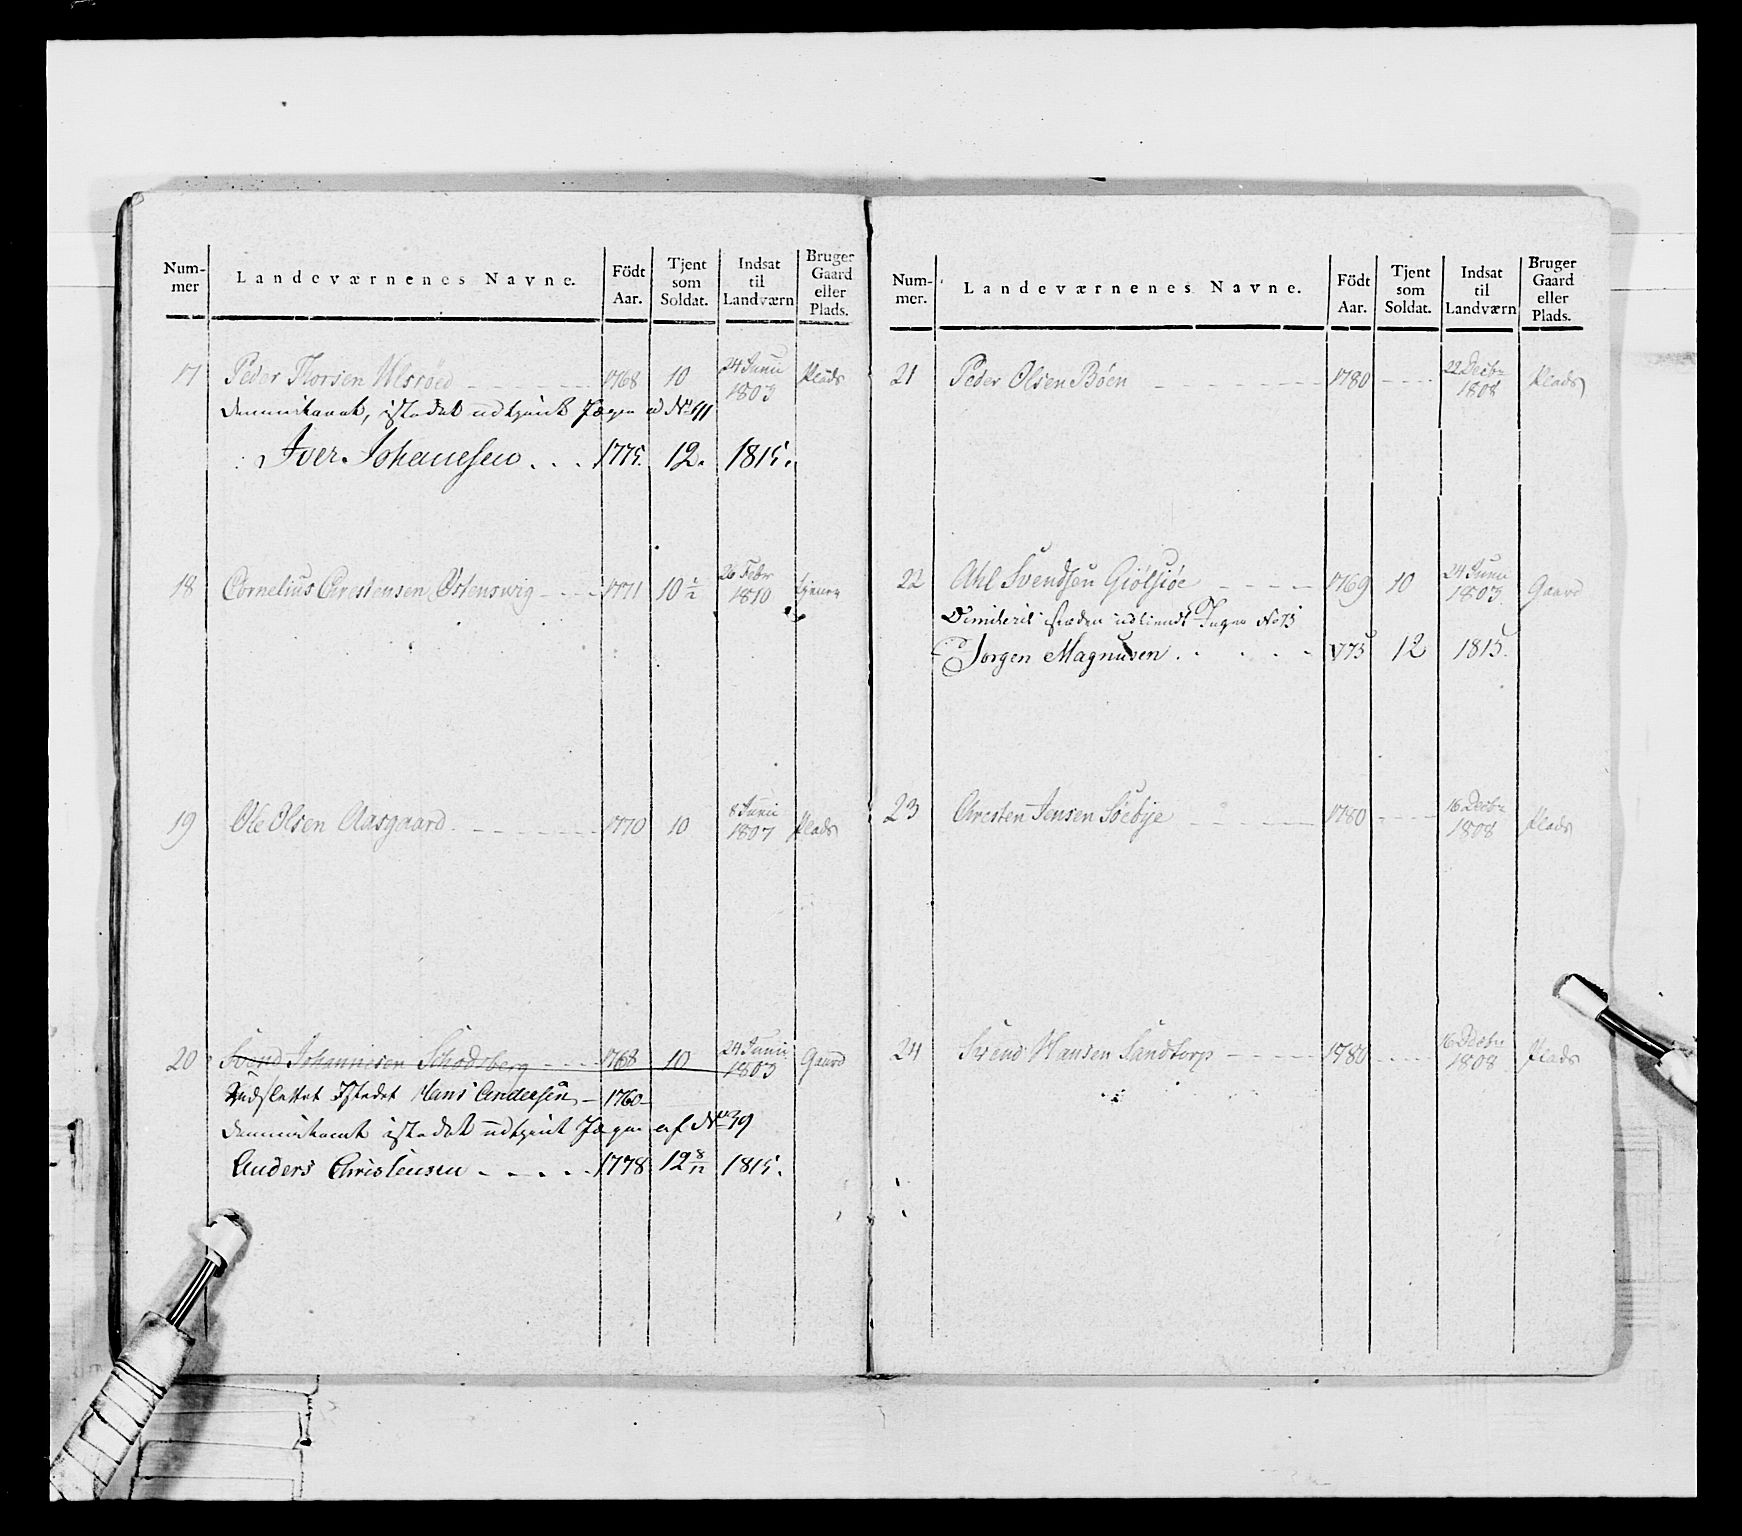 Num-mer | Landeværnenes Navne. | Födt Aar. | Tjent som Soldat. | Indsat til Landværn | Bruger Gaard eller Plads.
17 Peder Thorsen Ulsröed 1768 10 24 Junii 1803 Plads
istedet udtjent Jæger af No 111
Iver Johanesen 1775. 12. 1815.
18 Cornelius Chrestensen Östenswig 1771 10 1/2 26 Febr 1810 tjener
19 Ole Olsen Aasgaard 1770 10 8 Junii 1807 Plads
20 Svend Johannesen Schodsberg 1768 10 24 Junii 1803 Gaard
Udslettet Istedet Hans Andersen 1760
istedet udtjent Jæger af No 39
Anders Christensen 1778 12 8/12 1815.
Num-mer. | Landeværnenes Navne. | Födt Aar. | Tjent som Soldat. | Indsat til Landværn | Bruger Gaard eller Plads.
21 Peder Olsen Böen 1780 22 Decbr 1808 Plads
22 Ahl Svendsen Giölsiöe 1769 10 24 Junii 1803 Gaard
Dimiterit stæden udtient Jæger No 73
Jörgen Magnusen 1775 12 1815.
23 Chresten Jensen Söebye 1780 16 Decbr 1808 Plads
24 Svend Hansen Sandtorp 1780 16 Decbr 1808 Plads